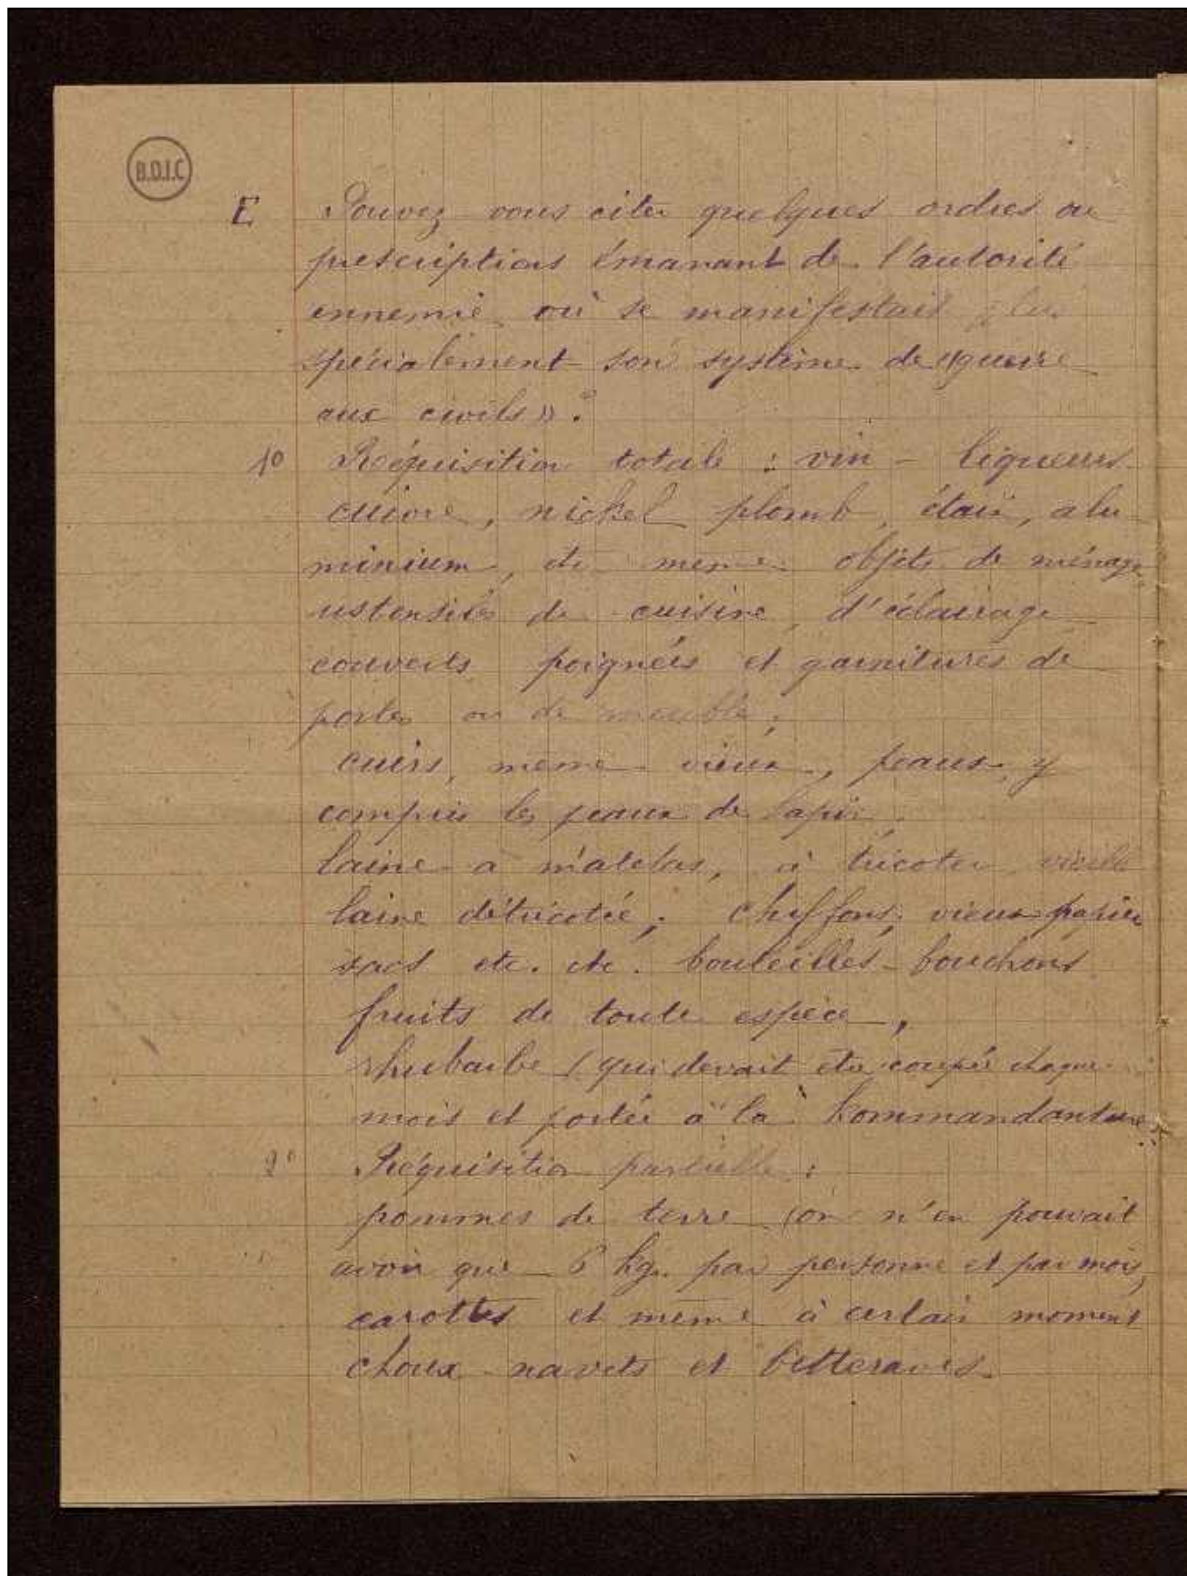 B.D.I.C
E Pouvez vous citer quelques ordres ou
prescriptions émanant de l'autorité
ennemie où se manifestait plus
spécialement son système de "guerre
aux civils" ?
1° Réquisition totale : vin - liqueurs
cuivre, nickel plomb, étain, alu
minium, de même objets de ménage
ustensiles de cuisine, d'éclairage
couverts poignées et garnitures de
portes ou de meuble ;
cuirs, même vieux, peaux, y
compris les peaux de lapin.
laine à matelas, à tricoter vieille
laine détricotée ; chiffons, vieux papier
sacs etc. etc. bouteilles - bouchons
fruits de toute espèce,
rhubarbe (qui devait être coupée chaque
mois et portée à la Kommandanture
2° Réquisition partielle :
pommes de terre (on n'en pouvait
avoir que 6 kg. par personne et par mois,
carottes et même à certain moment
choux navets et betteraves.